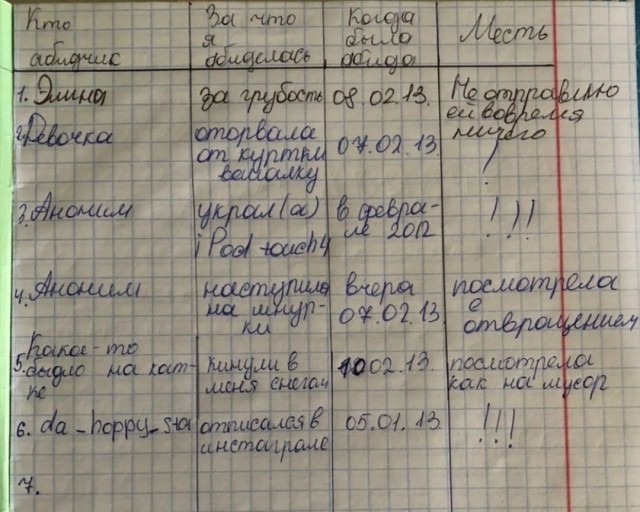 Кто абидчик
За что я абиделась
Когда была абида
Месть
1. Элина
за грубость
08.02.13.
Не отправлю ей вовремя ничего
2. Девочка
оторвала от куртки вешалку
07.02.13.
!
3. Аноним
украл(а) iPod touch 4
в феврале 2012
!!!
4. Аноним
наступила на шнурки
вчера 07.02.13
посмотрела с отвращением
5. Какое-то быдло на катке
кинули в меня снегом
10 02.13.
посмотрела как на мусор
6. da_happy_sta
отписался в инстаграме
05.01.13
!!!
7.